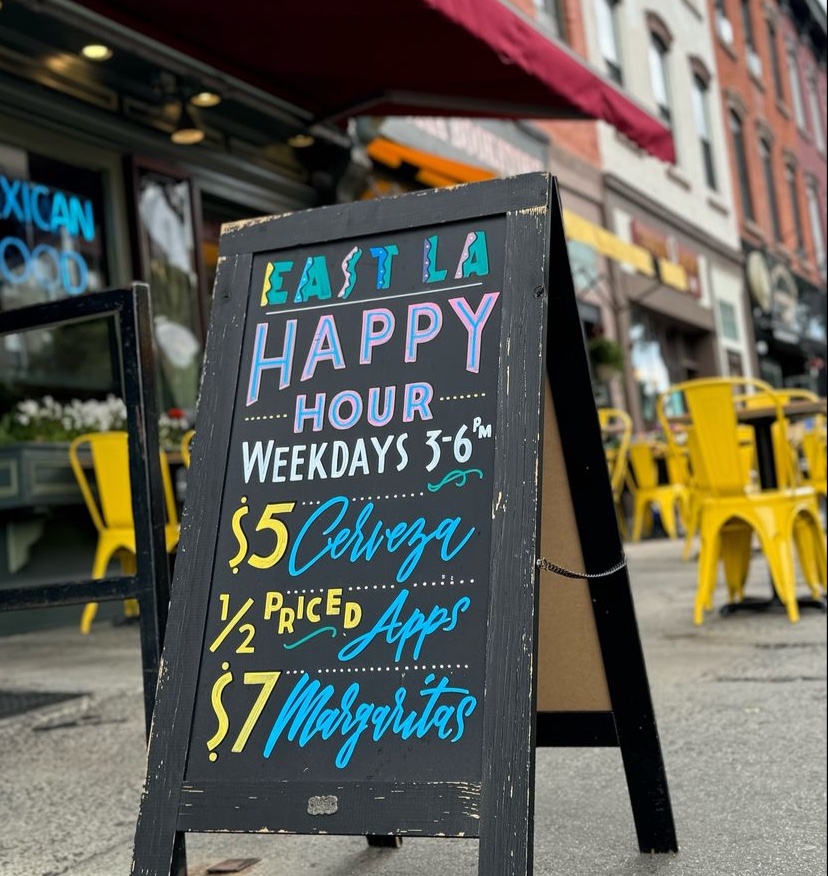 EXICAN
FOOD
EAST LA
HAPPY
HOUR
WEEKDAYS 3-6PM
$5 Cerveza
1/2 PRICED Apps
$7 Margaritas